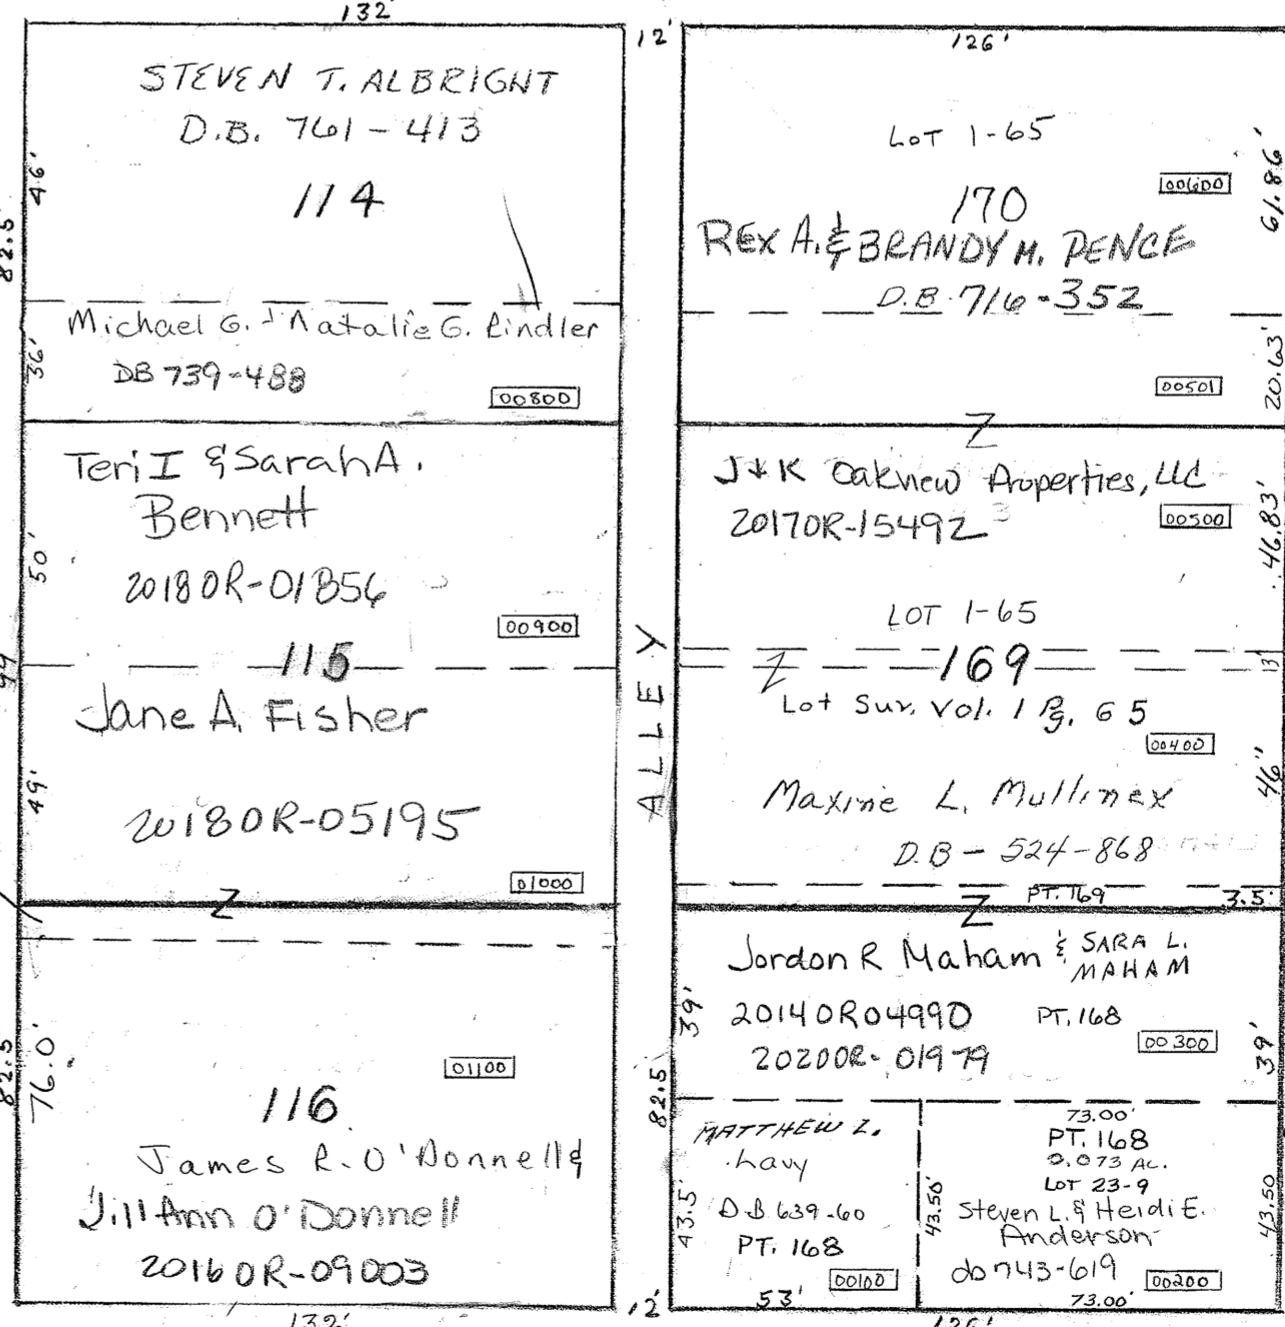 132'
STEVEN T. ALBRIGHT
D.B. 761-413
114
46'
82.5'
Michael G. & Natalie G. Rindler
DB 739-488
36'
00800
Teri I & Sarah A.
Bennett
2018OR-01856
50'
00900
115
99
Jane A. Fisher
2018OR-05195
49'
01000
Z
82.5
76.0'
01100
116
James R. O'Donnell &
Jill Ann O'Donnell
2016OR-09003
132'
12'
ALLEY
12'
126'
LOT 1-65
00600
170
61.86'
REX A. & BRANDY M. PENCE
D.B. 716-352
20.63'
00501
Z
J & K Oakview Properties, LLC
2017OR-15492
3
00500
46.83'
LOT 1-65
169
Z
13'
Lot Sur. Vol. 1 Pg. 65
00400
46"
Maxine L. Mullinex
D.B - 524-868
PT. 169
3.5'
Z
Jordon R Maham & SARA L.
MAHAM
39'
2014OR04990
PT. 168
2020OR-01979
00300
39'
82.5
MATTHEW L.
Lavy
DB 639-60
PT. 168
43.5'
00100
53'
73.00'
PT. 168
0.073 AC.
LOT 23-9
43.50'
Steven L. & Heidi E.
Anderson
43.50
db 743-619
00200
73.00'
126'